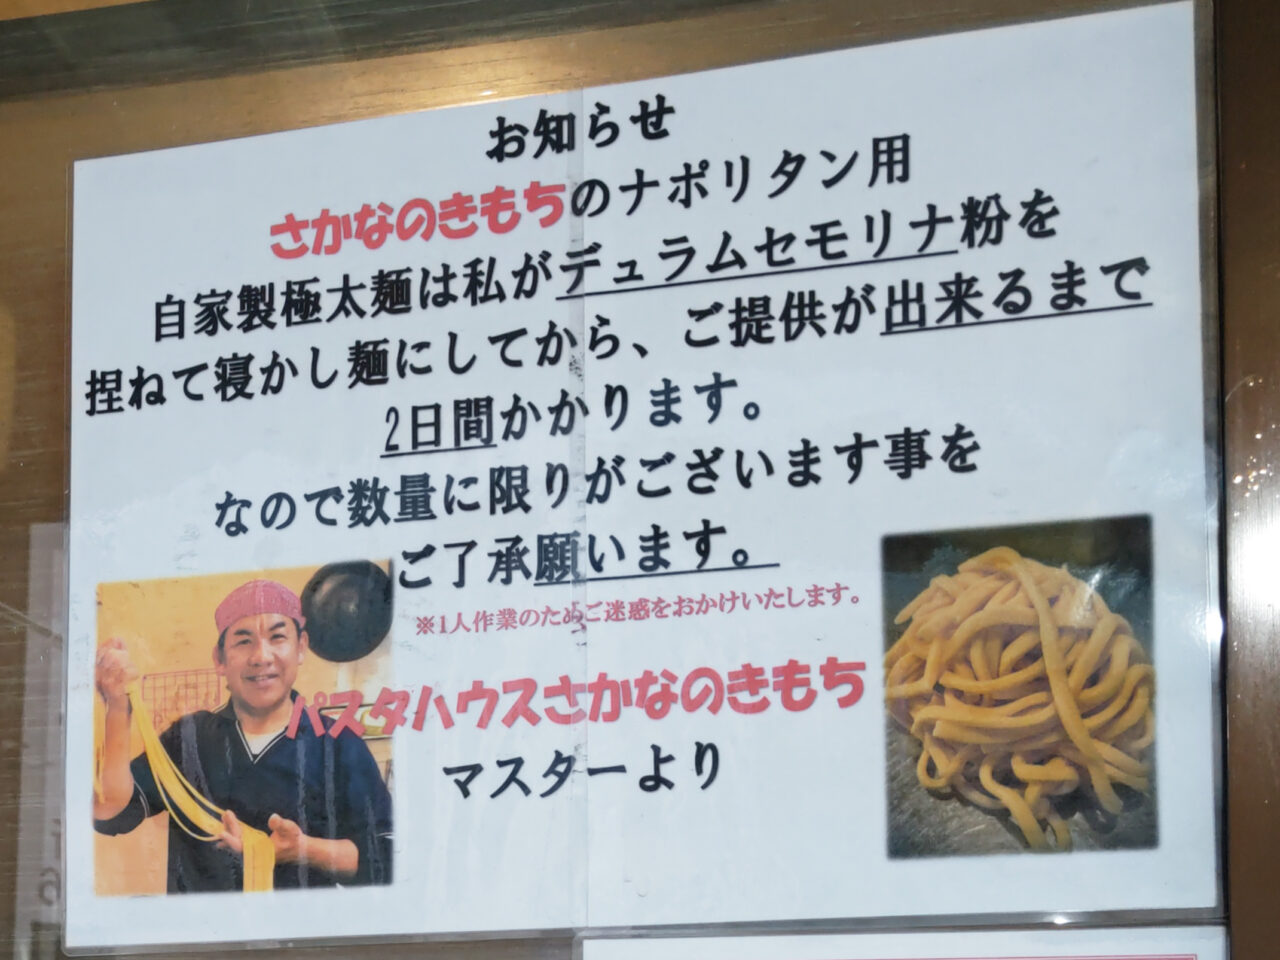 お知らせ
さかなのきもちのナポリタン用
自家製極太麺は私がデュラムセモリナ粉を
捏ねて寝かし麺にしてから、ご提供が出来るまで
2日間かかります。
なので数量に限りがございます事を
ご了承願います。
※1人作業のためご迷惑をおかけいたします。
パスタハウスさかなのきもち
マスターより